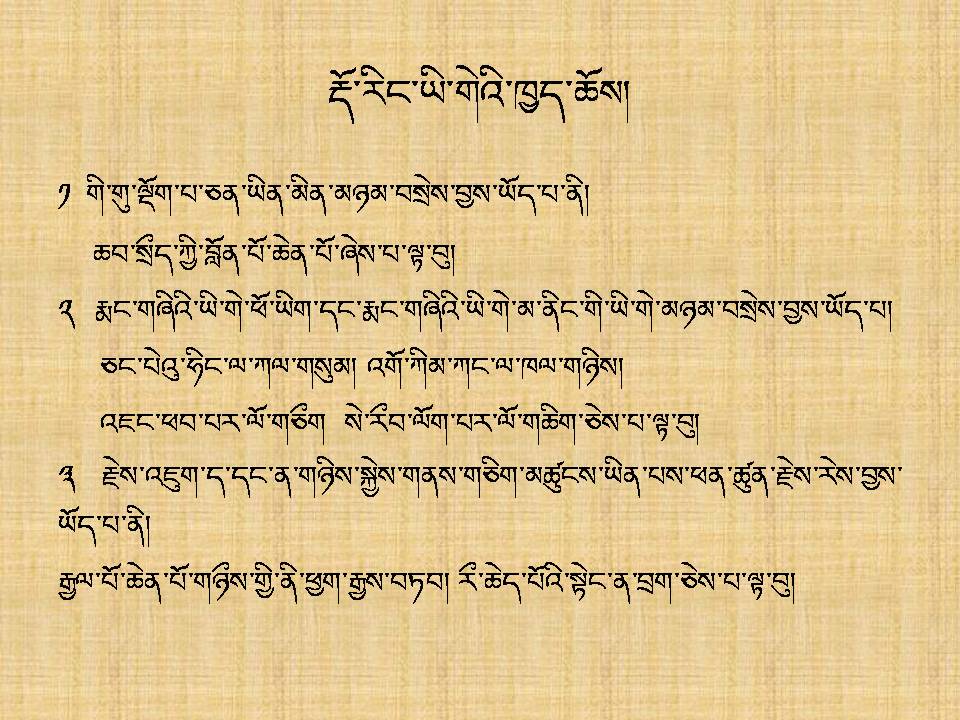 རྡོ་རིང་ཡི་གེའི་ཁྱད་ཆོས།
༡ གི་གུ་ལྡོག་པ་ཅན་ཡིན་མིན་མཉམ་བསྲེས་བྱས་ཡོད་པ་ནི།
ཆབ་སྲྀད་ཀྱི་བློན་པོ་ཆེན་པོ་ཞེས་པ་ལྟ་བུ།
༢ རྨང་གཞིའི་ཡི་གེ་ཕོ་ཡིག་དང་རྨང་གཞིའི་ཡི་གེ་མ་ནིང་གི་ཡི་གེ་མཉམ་བསྲེས་བྱས་ཡོད་པ།
ཅང་པེའུ་ཧེང་ལ་ཀལ་གསུམ། འགོ་ཀིམ་ཀང་ལ་ཁལ་གཉིས།
འཇང་ཕབ་པར་ལོ་གཅྀག སེ་རྀབ་ལོག་པར་ལོ་གཆིག་ཅེས་པ་ལྟ་བུ།
༣ རྗེས་འཇུག་ད་དང་ན་གཉིས་སྐྱེས་གནས་གཅིག་མཚུངས་ཡིན་པས་ཕན་ཚུན་རྗེས་རེས་བྱས་
ཡོད་པ་ནི།
རྒྱལ་པོ་ཆེན་པོ་གཉྀས་གྱི་ནི་ཕྱག་རྒྱས་བཏབ། རྀ་ཆེད་པོའི་སྟེང་ན་བྲག་ཅེས་པ་ལྟ་བུ།